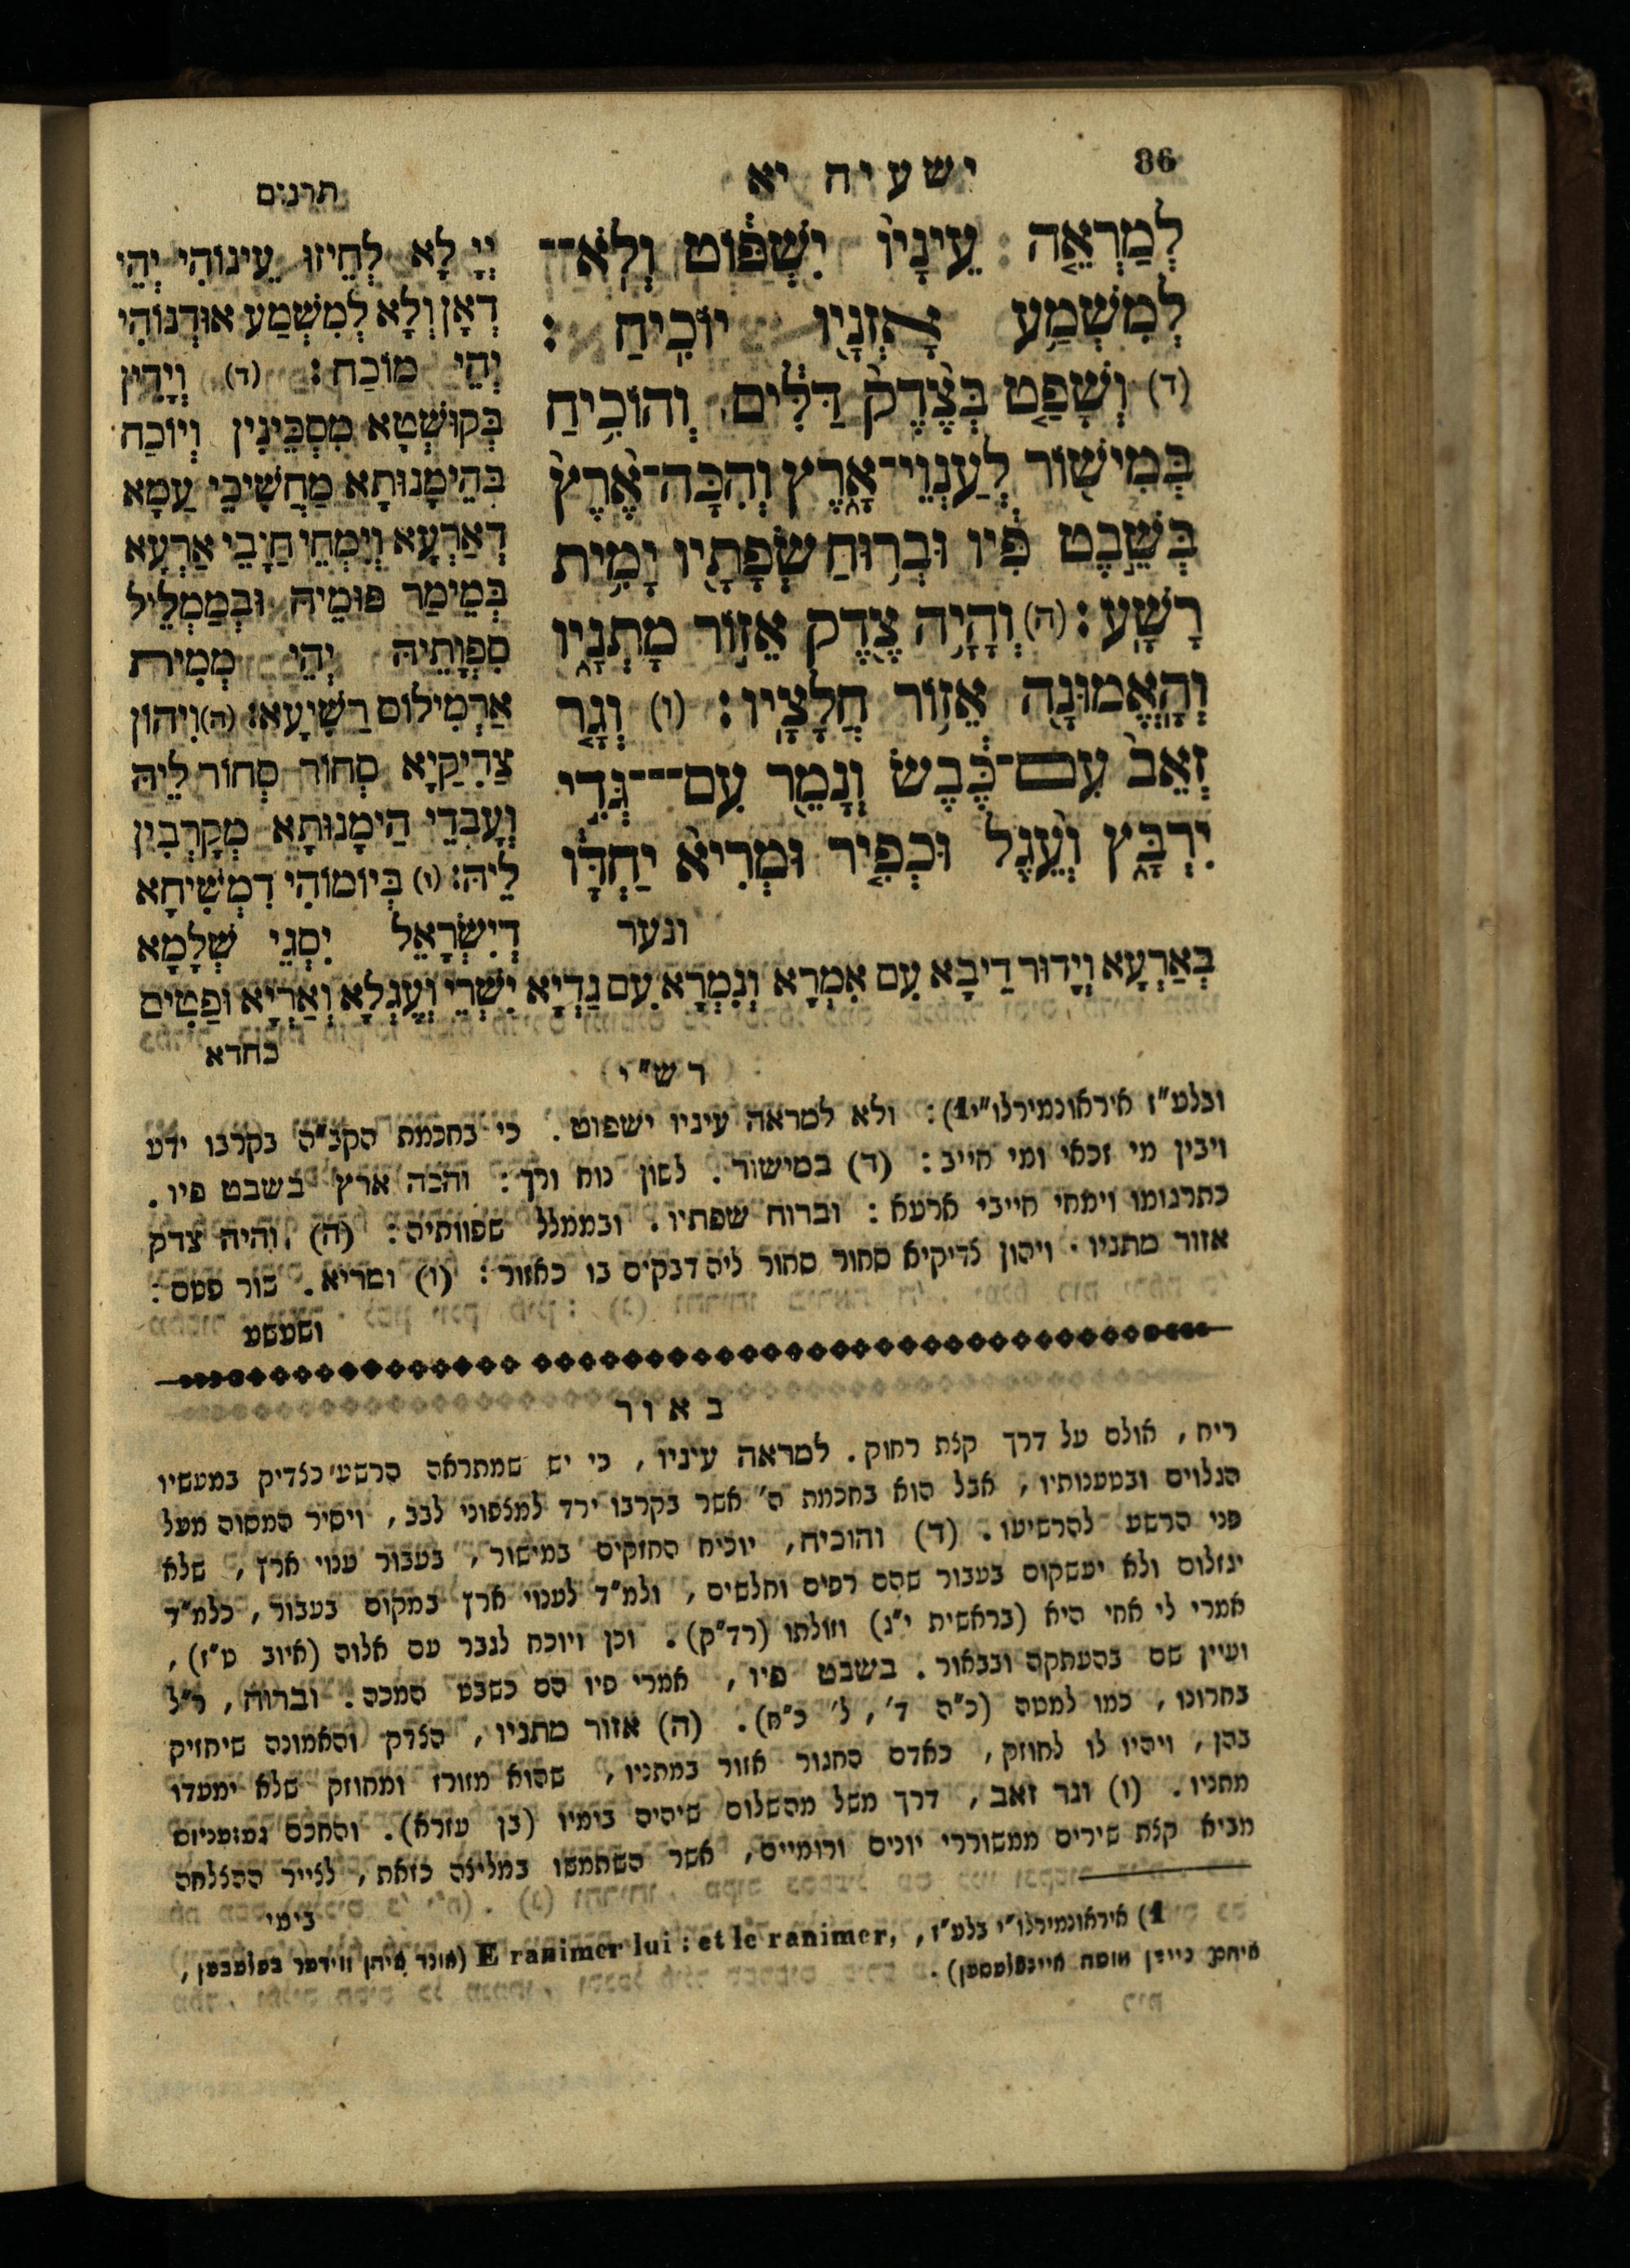 86
ישעיה יא
תרגום
לְמַרְאֵ֤ה עֵינָיו֙ יִשְׁפּ֔וֹט וְלֹֽא־־
לְמִשְׁמַ֥ע אָזְנָ֖יו יוֹכִֽיחַ :
(ד) וְשָׁפַ֤ט בְּצֶ֙דֶק֙ דַּלִּ֔ים וְהוֹכִ֥יחַ
בְּמִישׁ֖וֹר לְעַנְוֵי־אָ֑רֶץ וְהִכָּה־אֶ֙רֶץ֙
בְּשֵׁ֣בֶט פִּ֔יו וּבְר֥וּחַ שְׂפָתָ֖יו יָמִ֥ית
רָשָֽׁע : (ה) וְהָ֥יָה צֶ֖דֶק אֵז֣וֹר מָתְנָ֑יו
וְהָֽאֱמוּנָ֖ה אֵז֥וֹר חֲלָצָֽיו : (ו) וְגָ֤ר
זְאֵב֙ עִם־כֶּ֔בֶשׂ וְנָמֵ֖ר עִם־־־גְּדִ֣י
יִרְבָּ֑ץ וְעֵ֨גֶל וּכְפִ֤יר וּמְרִיא֙ יַחְדָּ֔ו
ונער
יְיָ לָא לְחֵיזוּ עֵינוֹהִי יְהֵי
דְאָן וְלָא לְמִשְׁמַע אוּדְנוֹהִי
יְהֵי מוֹכַח : (ד) וְיָדִין
בְּקוּשְׁטָא מִסְכֵּינִין וְיוֹכַח
בְּהֵימָנוּתָא מַחֲשִׁיכֵי עַמָּא
דְאַרְעָא וְיִמְחֵי חַיָבֵי אַרְעָא
בְּמֵימַר פּוּמֵיהּ וּבְמַמְלֵיל
סִפְוָתֵיהּ יְהֵי מְמִית
אַרְמִילוֹם רַשִׁיעָא : (ה) וִיהוֹן
צַדִיקַיָא סְחוֹר סְחוֹר לֵיהּ
וְעָבְדֵי הֵימָנוּתָא מְקָרְבִין
לֵיהּ : (ו) בְּיוֹמוֹהִי דִמְשִׁיחָא
דְיִשְׂרָאֵל יִסְגֵי שְׁלָמָא
בְּאַרְעָא וְיָדוּר דֵיבָא עִם אִמְרָא וְנִמְרָא עִם גַדְיָא יִשְׁרֵי וְעֶגְלָא וְאַרְיָא וּפַטִים
כחדא
רש"י
ובלע"ז איראונמירלו"י1) : ולא למראה עיניו ישפוט . כי בחכמת הקב"ה בקרבו ידע
ויבין מי זכאי ומי חייב : (ד) במישור . לשון נוח ורך : והכה ארץ בשבט פיו .
כתרגומו וימחי חייבי ארעא : וברוח שפתיו . ובממלל שפוותיה : (ה) והיה צדק
אזור מתניו . ויהון צדיקיא סחור סחור ליה דבקים בו כאזור : (ו) ומריא . שור פטם :
ושעשע
באור
ריח , אולם על דרך קצת רחוק . למראה עיניו , כי יש שמתראה הרשע כצדיק במעשיו
הגלוים ובטענותיו , אבל הוא בחכמת ה' אשר בקרבו ירד למצפוני לבב , ויסיר המסוה מעל
פני הרשע להרשיעו . (ד) והוכיח , יוכיח החזקים במישור , בעבור ענוי ארץ , שלא
יגזלום ולא יעשקום בעבור שהם רפים וחלשים , ולמ"ד לענוי ארץ במקום בעבור , כלמ"ד
אמרי לי אחי היא (בראשית י"ג) וזולתו (רד"ק) . וכן ויוכח לגבר עם אלוה (איוב ט"ז) ,
ועיין שם בהעתקה ובבאור . בשבט פיו , אמרי פיו הם כשבט המכה . וברוח , ר"ל
בחרונו , כמו למטה (כ"ה ד' , ל' כ"ח) . (ה) אזור מתניו , הצדק והאמונה שיחזיק
בהן , ויהיו לו לחוזק , כאדם החגור אזור במתניו , שהוא מזורז ומחוזק שלא ימעדו
מתניו . (ו) וגר זאב , דרך משל מהשלום שיהיה בימיו (בן עזרא) . והחכם געזעניוס
מביא קצת שירים ממשוררי יונים ורומיים , אשר השתמשו במליצה כזאת , לצייר ההצלחה
בימי
1) איראונמירלו"י בלע"ז , E ranimer lui : et le ranimer, (אונד איהן ווידער בעלעבען ,
איהם נייען מוטה איינפלעסען) .